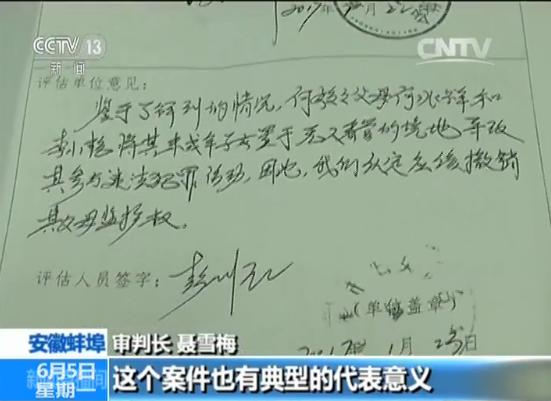 2017年 月22
CCTV 13
新闻
CNTV
评估单位意见:
鉴于了解到的情况,何 之父母何 和
李 将其未成年子女置于无人看管的境地导致
其参与违法犯罪活动,因此,我们认定应该撤销
其父母监护权。
评估人员签字:
(单位盖章)
月 日
安徽蚌埠
审判长 聂雪梅
6月5日
星期一
这个案件也有典型的代表意义